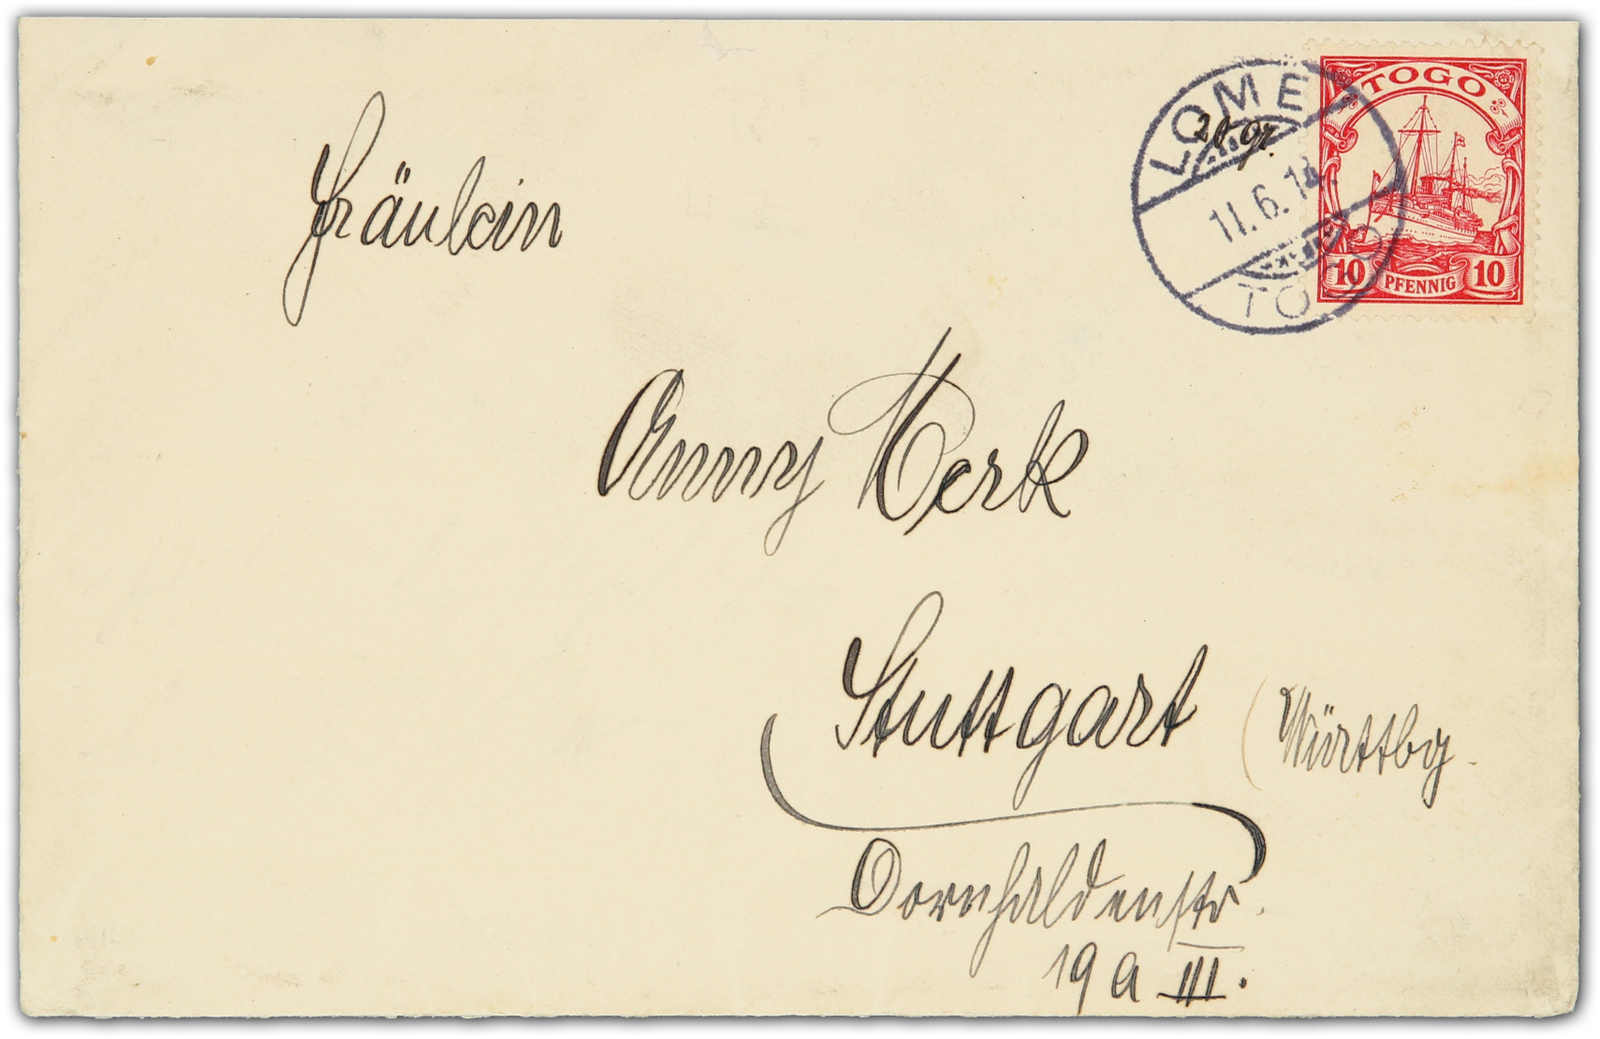 TOGO
10 PFENNIG 10
LOME
11.6.14.
TOGO
Fräulein
Anny Merk
Stuttgart (Württbg.
Dornhaldenstr.
19 a III.